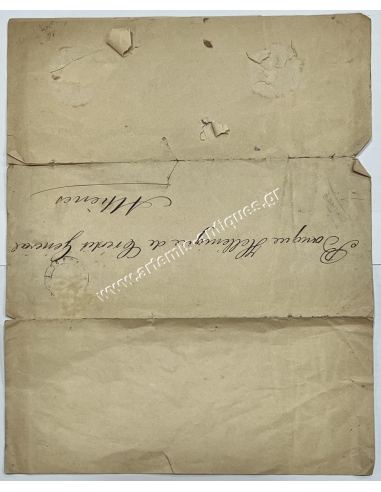 Banque Hellénique de Crédit Général
Athènes
www.artemis-antiques.gr